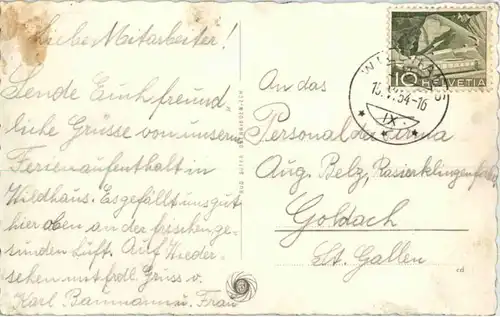 Liebe Mitarbeiter!
Sende Euch freund-
liche Grüsse von unserm
Ferienaufenthalt in
Wildhaus. Es gefällt uns gut
hier oben an der frischen ge-
sunden Luft. Auf Wieder-
sehen mit frdl. Gruss v.
Karl Baumann u. Frau
An das
Personal der Firma
Aug. Belz, Rasierklingenfabrik
Goldach
Kt. St. Gallen
10 HELVETIA
WILDHAUS
54-16
IX